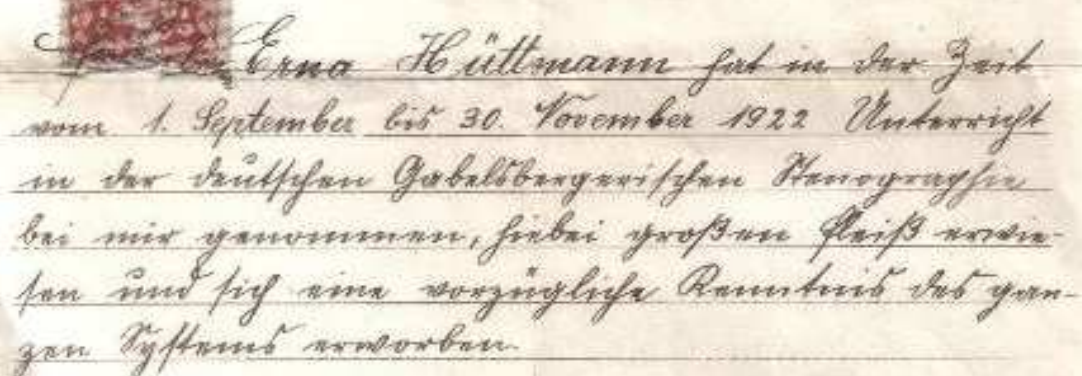 Erna Hüttmann hat in der Zeit
vom 1. September bis 30. November 1922 Unterricht
in der deutschen Gabelsbergerischen Stenographie
bei mir genommen, hiebei großen Fleiß erwie-
sen und sich eine vorzügliche Kenntnis des gan-
zen Systems erworben.